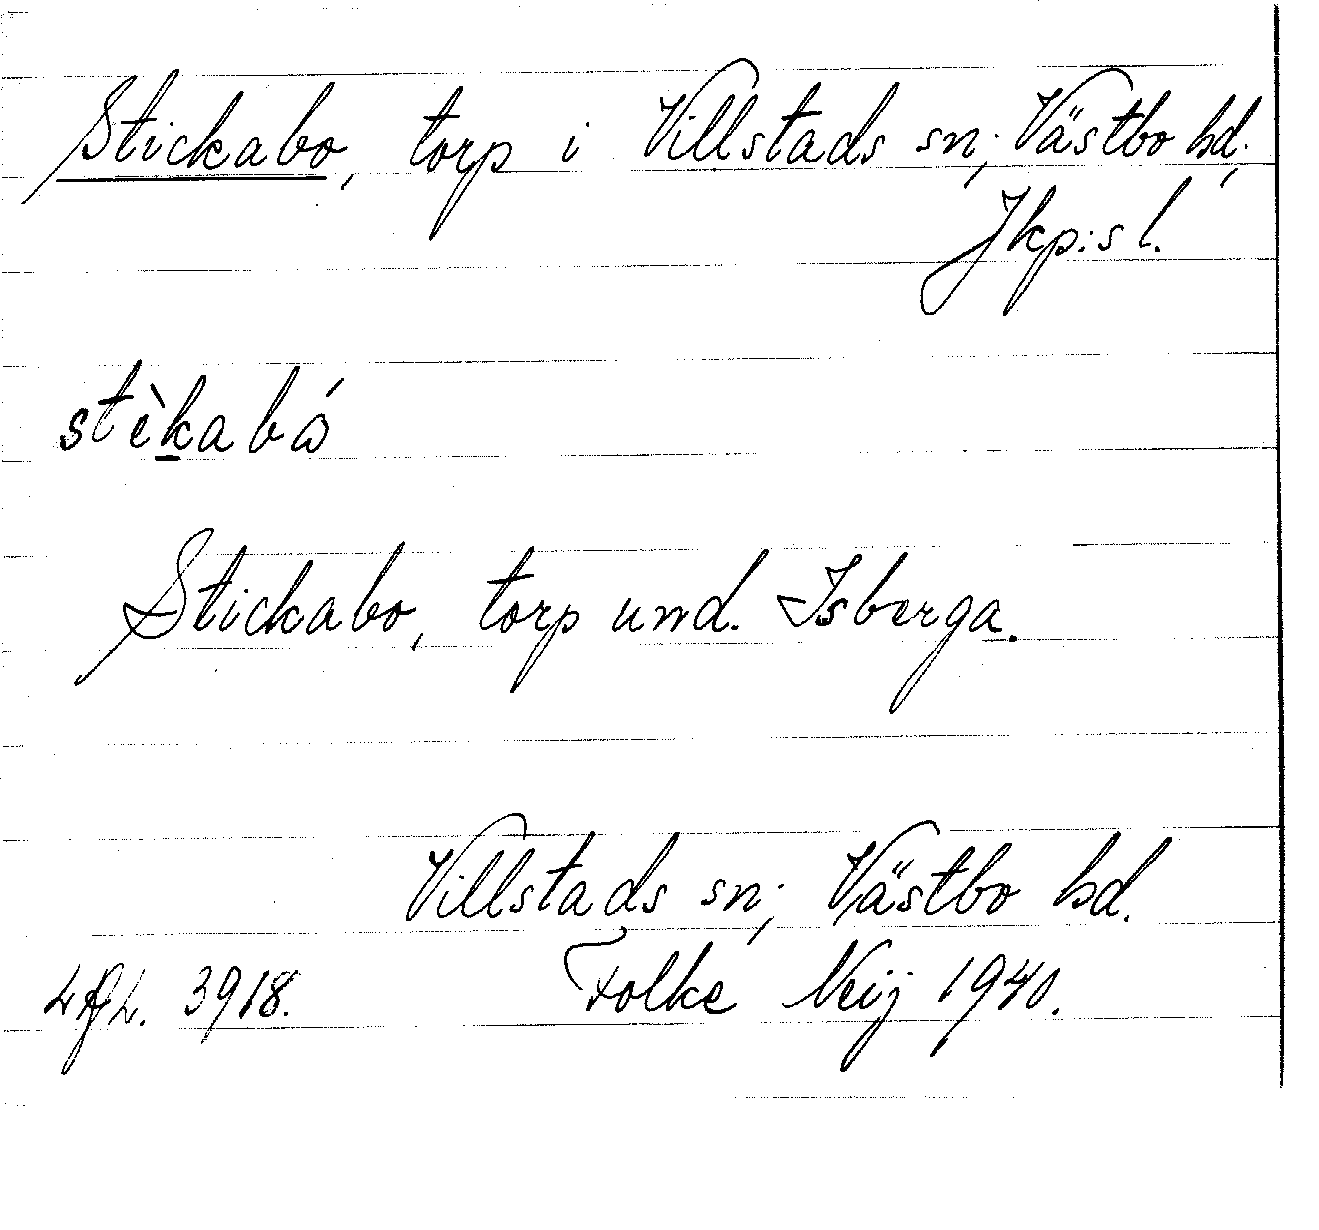 Stickabo, torp i Villstads sn; Västbo hd;
Jkp:s l.
stèkabó
Stickabo, torp und. Isberga.
Villstads sn; Västbo hd.
3918. Folke Neij 1940.